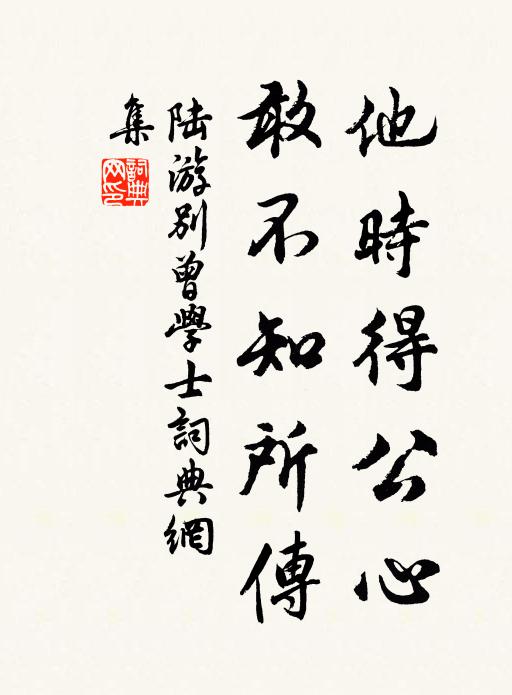 他時得公心
敢不知所傳
陆游别曾學士詞典網
集
詞典網印